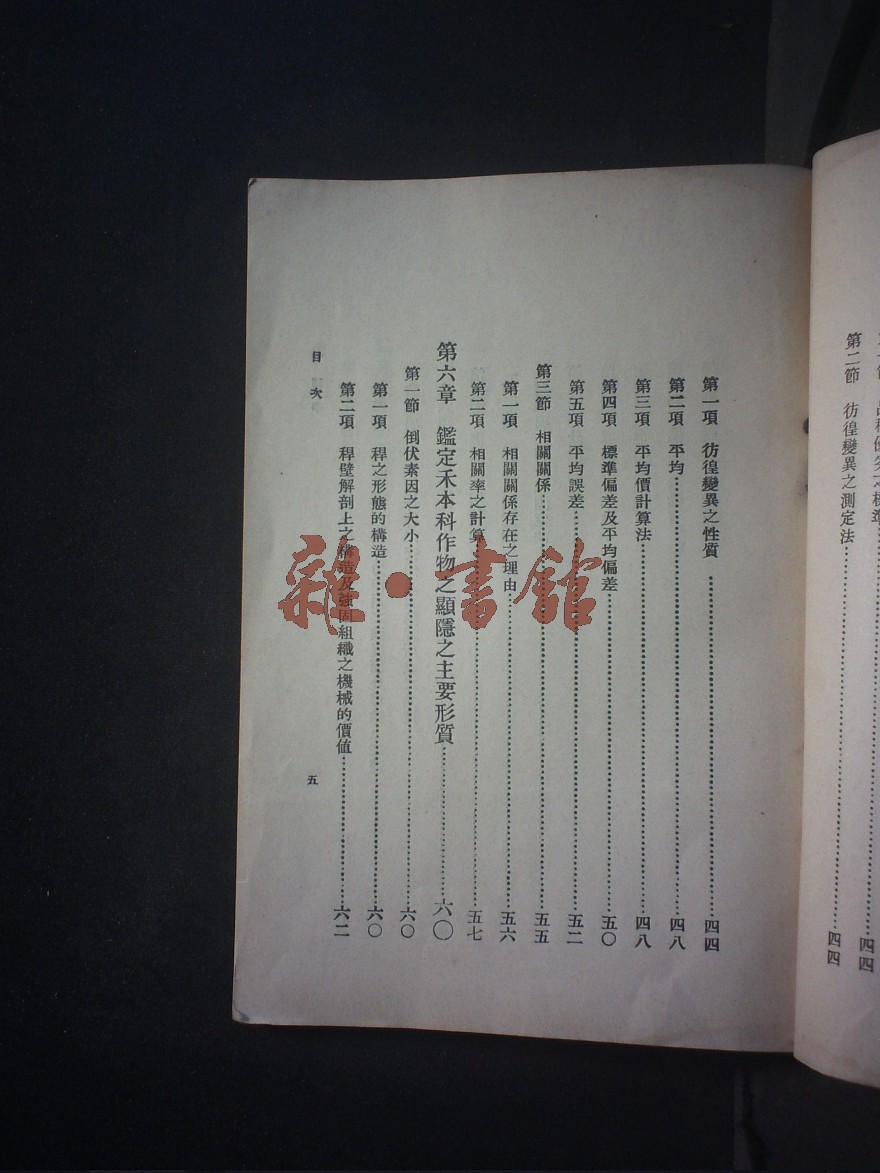 第二節　彷徨變異之測定法………四四
第一項　彷徨變異之性質………四四
第二項　平均………四八
第三項　平均價計算法………四八
第四項　標準偏差及平均偏差………五〇
第五項　平均誤差………五二
第三節　相關關係………五五
第一項　相關關係存在之理由………五六
第二項　相關率之計算………五七
第六章　鑑定禾本科作物之顯隱之主要形質………六〇
第一節　倒伏素因之大小………六〇
第一項　稈之形態的構造………六〇
第二項　稈壁解剖上之構造及強固組織之機械的價值………六二
目次
五
雜·書館